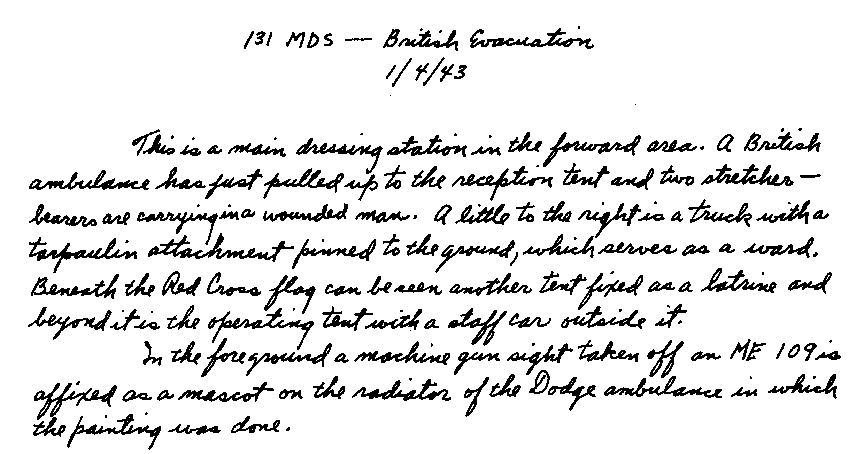 131 MDS — British Evacuation
1/4/43
This is a main dressing station in the forward area. A British
ambulance has just pulled up to the reception tent and two stretcher-
bearers are carrying in a wounded man. A little to the right is a truck with a
tarpaulin attachment pinned to the ground, which serves as a ward.
Beneath the Red Cross flag can be seen another tent fixed as a latrine and
beyond it is the operating tent with a staff car outside it.
In the foreground a machine gun sight taken off an ME 109 is
affixed as a mascot on the radiator of the Dodge ambulance in which
the painting was done.